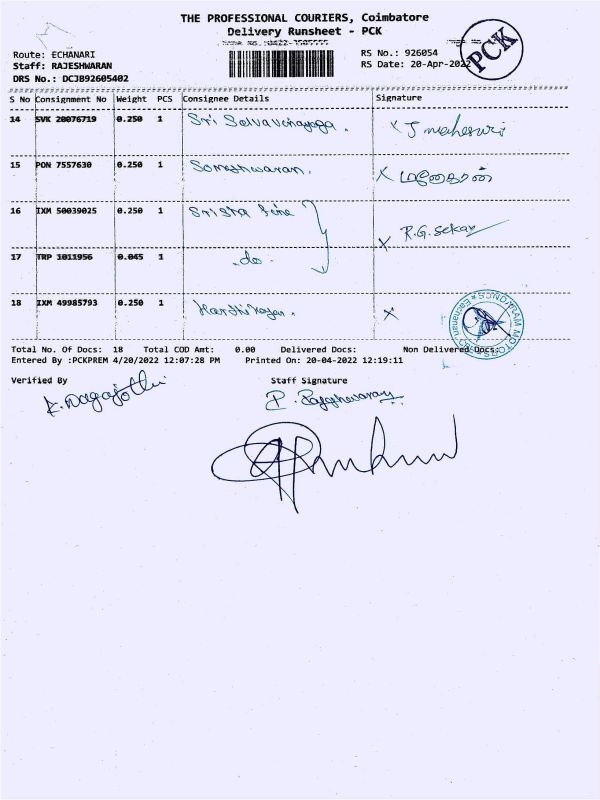 THE PROFESSIONAL COURIERS, Coimbatore
Delivery Runsheet - PCK
PCK
Route: ECHANARI
Staff: RAJESHWARAN
DRS No.: DCJB92605402
RS No.: 926054
RS Date: 20-Apr-2022
S No Consignment No Weight PCS Consignee Details Signature
14 SVK 20076719 0.250 1 Sri Selvavinayaga. x J maheswri
15 PON 7557630 0.250 1 Someshwaran. x
16 IXM 50039025 0.250 1 x R.G.Sekar
17 TRP 1011956 0.045 1 .do.
18 IXM 49985793 0.250 1 x
Total No. Of Docs: 18 Total COD Amt: 0.00 Delivered Docs: Non Delivered Docs:
Entered By :PCKPREM 4/20/2022 12:07:28 PM Printed On: 20-04-2022 12:19:11
Verified By Staff Signature
K. Nagajothi